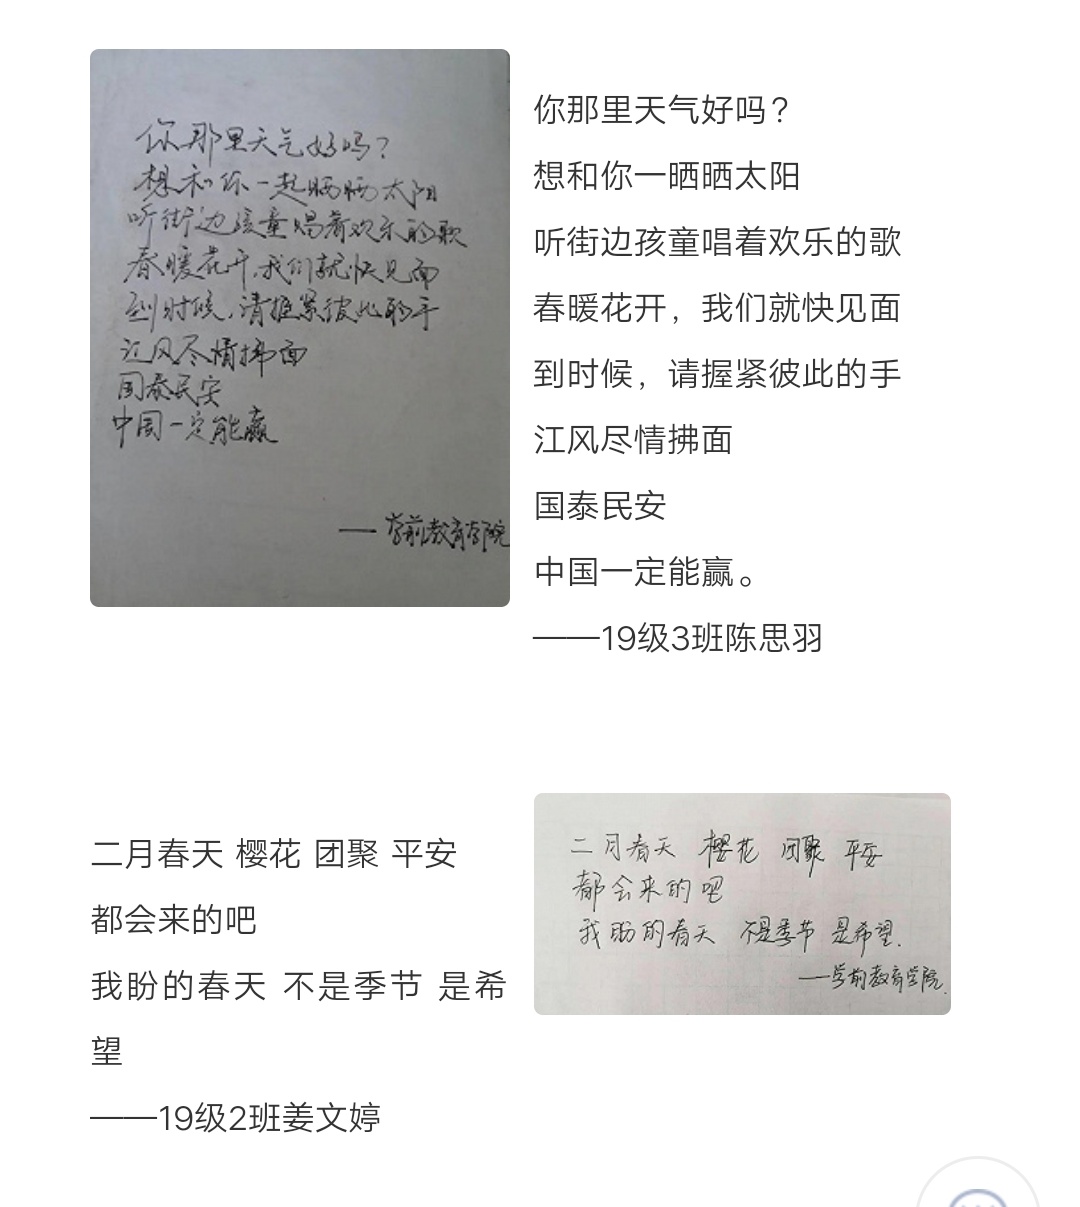 你那里天气好吗？
想和你一起晒晒太阳
听街边孩童唱着欢乐的歌
春暖花开,我们就快见面
到时候,请握紧彼此的手
江风尽情拂面
国泰民安
中国一定能赢
——学前教育学院
你那里天气好吗？
想和你一晒晒太阳
听街边孩童唱着欢乐的歌
春暖花开，我们就快见面
到时候，请握紧彼此的手
江风尽情拂面
国泰民安
中国一定能赢。
——19级3班陈思羽
二月春天 樱花 团聚 平安
都会来的吧
我盼的春天 不是季节 是希
望
——19级2班姜文婷
二月春天 樱花 团聚 平安
都会来的吧
我盼的春天 不是季节 是希望.
——学前教育学院.